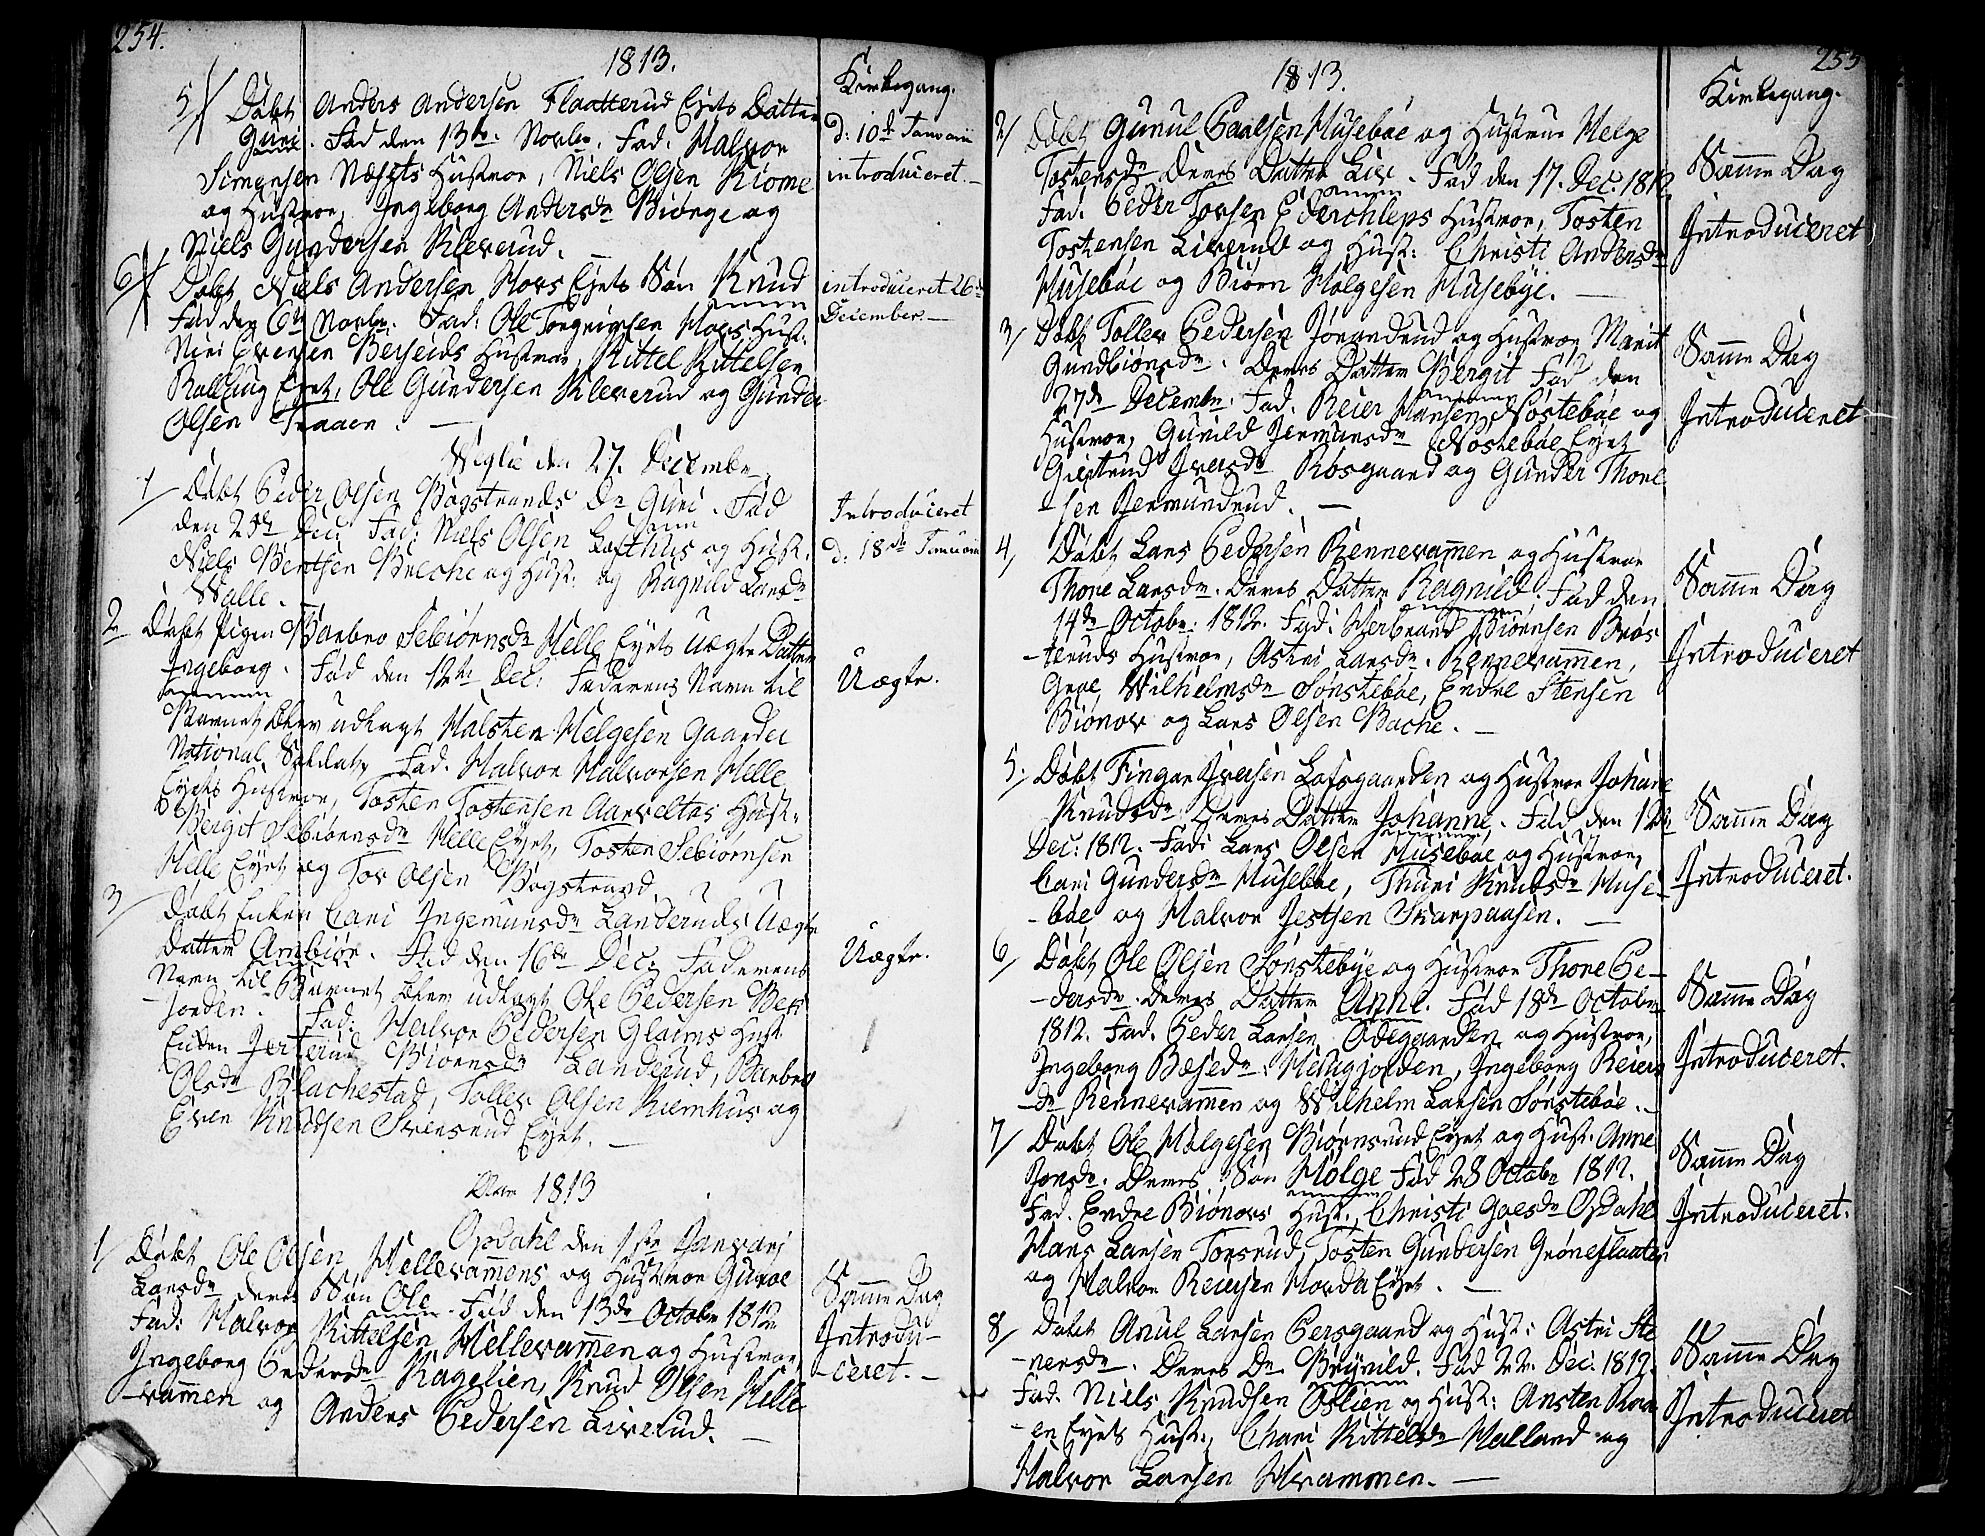 254.
1813.
Kirkegang.
5/ Døbt Anders Andersen Flaatterud Eyets Datter
Guri. Fød den 13de Novbr. Fad: Halvor
Simensen Næsets Hustroe, Niels Olsen Kiome
og Hustroe, Ingeborg Andersdr Biørge og
Niels Gundersen Kleverud.
d: 10de Januarii
introduceret. –
6/ Døbt Niels Andersen Hovs Eyets Søn Knud
Fød den 6te Novbr. Fad: Ole Torgrimsen Hovs Hust.
Evensen Berseids Hustroe, Kittel Kittelsen
Eyet, Ole Gundersen Kleverud og Gunder
Olsen Traaen. –
introduceret 26de
December. –
Veglie den 27. Decembr.
1/ Døbt Peder Olsen Bogstrands Dr Guri. Fød
den 25de Dec. Fad: Niels Olsen Lofthus og Hust.
Niels Bentsen Brecke og Hust: og Ragnild Larsdr
Walle. –
Introduceret
d: 18de Januarii
2 Døbt Pigen Barbro Sebiørnsdr Helle Eyets Uægte Datter
Ingeborg. Fød den 12te Dec: Faderens Navn til
Barnet blev udlagt Halsten Helgesen Gaarder
National Soldat, Fad. Halvor Halvorsen Helle
Eyets Hustroe, Tosten Tostensen Aasveltas Hust.
Bergit Sebiørnsdr Helle Eyet, Tosten Sebiørnsen
Helle Eyet og Tor Olsen Bogstrand.
Uægte.
3/ Døbt Enken Cari Ingemunsdr Landeruds Uægte
Datter Ambiør. Fød den 16de Dec: Faderens
Navn til Barnet blev udlagt Ole Pedersen Ber
jorden. Fad: Halvor Pedersen Glaims Hust
Enken Jerterud Biørnsdr Landerud, Barbro
Olsdr Blachestad, Tollev Olsen Kiemhus og
Even Knudsen Svensrud Eyet. –
Uægte.
Aar 1813
Opdahl den 1ste Januarj
1/ Døbt Ole Olsen Hellevamens og Hustroe Guroe
Larsdr deres Søn Ole. Fød den 13de Octobr 1812
Fad: Halvor Kittelsen Hellevammen og Hustroe,
Ingeborg Pedersdr Kagelien, Knud Olsen Helle
-vammen og Anders Pedersen Liverud. –
Samme Dag
Introdu-
-ceret. –
255
1813.
Kirkegang.
2/ Døbt Gunul Paalsen Musebøe og Hustrue Helge
Tostensdr Deres Datter Liv. Fød den 17. Dec: 1812
Fad. Peder Torsen Ederchleps Hustroe, Tosten
Tostensen Liverud og Hust: Christi Andersdr
Musebøe og Biørn Holgesen Musebye. –
Samme Dag
Introduceret
3/ Døbt Tollev Pedersen Jørandrud og Hustroe Marit
Gundbiørnsdr. Deres Datter Bergit Fød den
27de Decembr. Fad. Reier Hansen Nørstebøe og
Hustroe, Gunild Jermunsdr Nørstebøe Eyet
Giertrud Iversdr Røsgaard og Gunder Thore
sen Jermundrud. –
Samme Dag
Introduceret
4, Døbt Lars Pedersen Rennevammen og Hustroe
Thore Larsdr. Deres Datter Ragnild. Fød den
14de Octobr. 1812. Fad: Herbrand Biørnsen Brøs
-teruds Hustroe, Astri Larsdr. Rennevammen,
Groe Wilhelmsdr Sønstebøe, Endre Stensen
Biønov og Lars Olsen Bache. –
Samme Dag
Introduceret
5. Døbt Fingar Iversen Lofsgaarden og Hustroe Johane
Knudsdr Deres Datter Johanne. Fød den 12te
Dec: 1812. Fad: Lars Olsen Musebøe og Hustroe,
Cari Gundersdr Musebøe, Thuri Knudsdr Muse
-bøe og Halvor Jestsen Skarpaasen. –
Samme Dag
Introduceret.
6/ Døbt Ole Olsen Sønstebye og Hustroe Thore Pe-
-dersdr. Deres Datter Anne. Fød 18de Octobr
1812. Fad. Peder Larsen Ødegaarden og Hustroe,
Ingeborg Bæsedr. Hellugjorden, Ingeborg Reiers
-dr Rennevammen og Wilhelm Larsen Sønstebøe. –
Samme Dag
Introduceret.
7/ Døbt Ole Holgesen Biørnsrud Eyet og Hust. Anne
Jonsdr. Deres Søn Holge Fød 28 Octobr 1812.
Fad. Endre Biønovs Hust., Christi Goesdr Opdahl
Hans Larsen Torsrud, Tosten Gundersen Grøneflaate
og Halvor Reiersen Horda Eyet. –
Samme Dag
Introduceret.
8/ Døbt Anul Larsen Persgaard og Hust: Astri Ste
-nersdr. Deres Dr Brynild. Fød 22. Dec. 1812.
Fad. Niels Knudsen Øslien og Hust: Ansten Kra
-en Eyets Hust., Chari Kittelsdr Halland og
Halvor Larsen Hvammen. –
Samme Dag
Introduceret